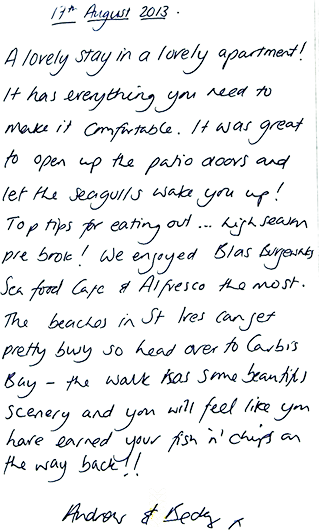 17th August 2013.
A lovely stay in a lovely apartment!
It has everything you need to
make it comfortable. It was great
to open up the patio doors and
let the seagulls wake you up!
Top tips for eating out... high season
pre book! We enjoyed Blas Burgerworks
Sea food Cafe & Alfresco the most.
The beaches in St Ives can get
pretty busy so head over to Carbis
Bay - the walk has some beautiful
scenery and you will feel like you
have earned your fish 'n' chips on
the way back!!
Andrew & Becky x